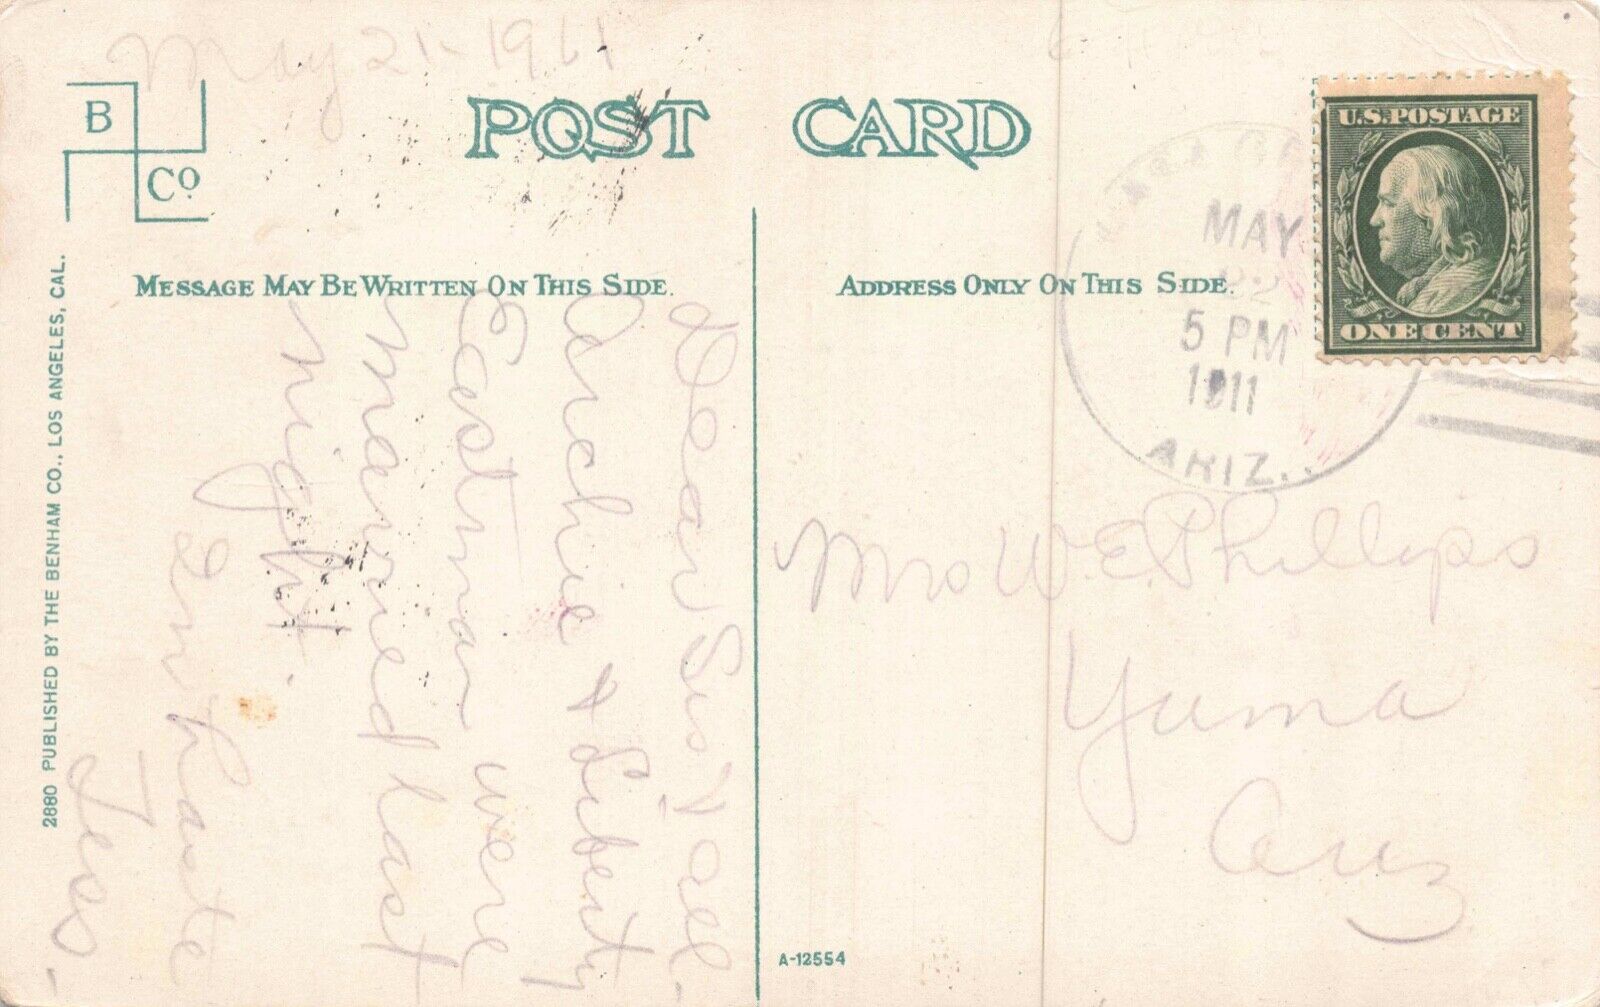 May 21-1911
B
Co.
POST CARD
MESSAGE MAY BE WRITTEN ON THIS SIDE.
ADDRESS ONLY ON THIS SIDE.
U.S. POSTAGE
ONE CENT
MAY
22
5 PM
1911
ARIZ.
Dear Sis & all-
Archie & Liberty
Eastman were
married last
night.
In haste
Jess-
Mrs W.E. Phillips
Yuma
Ariz
2880 PUBLISHED BY THE BENHAM CO., LOS ANGELES, CAL.
A-12554